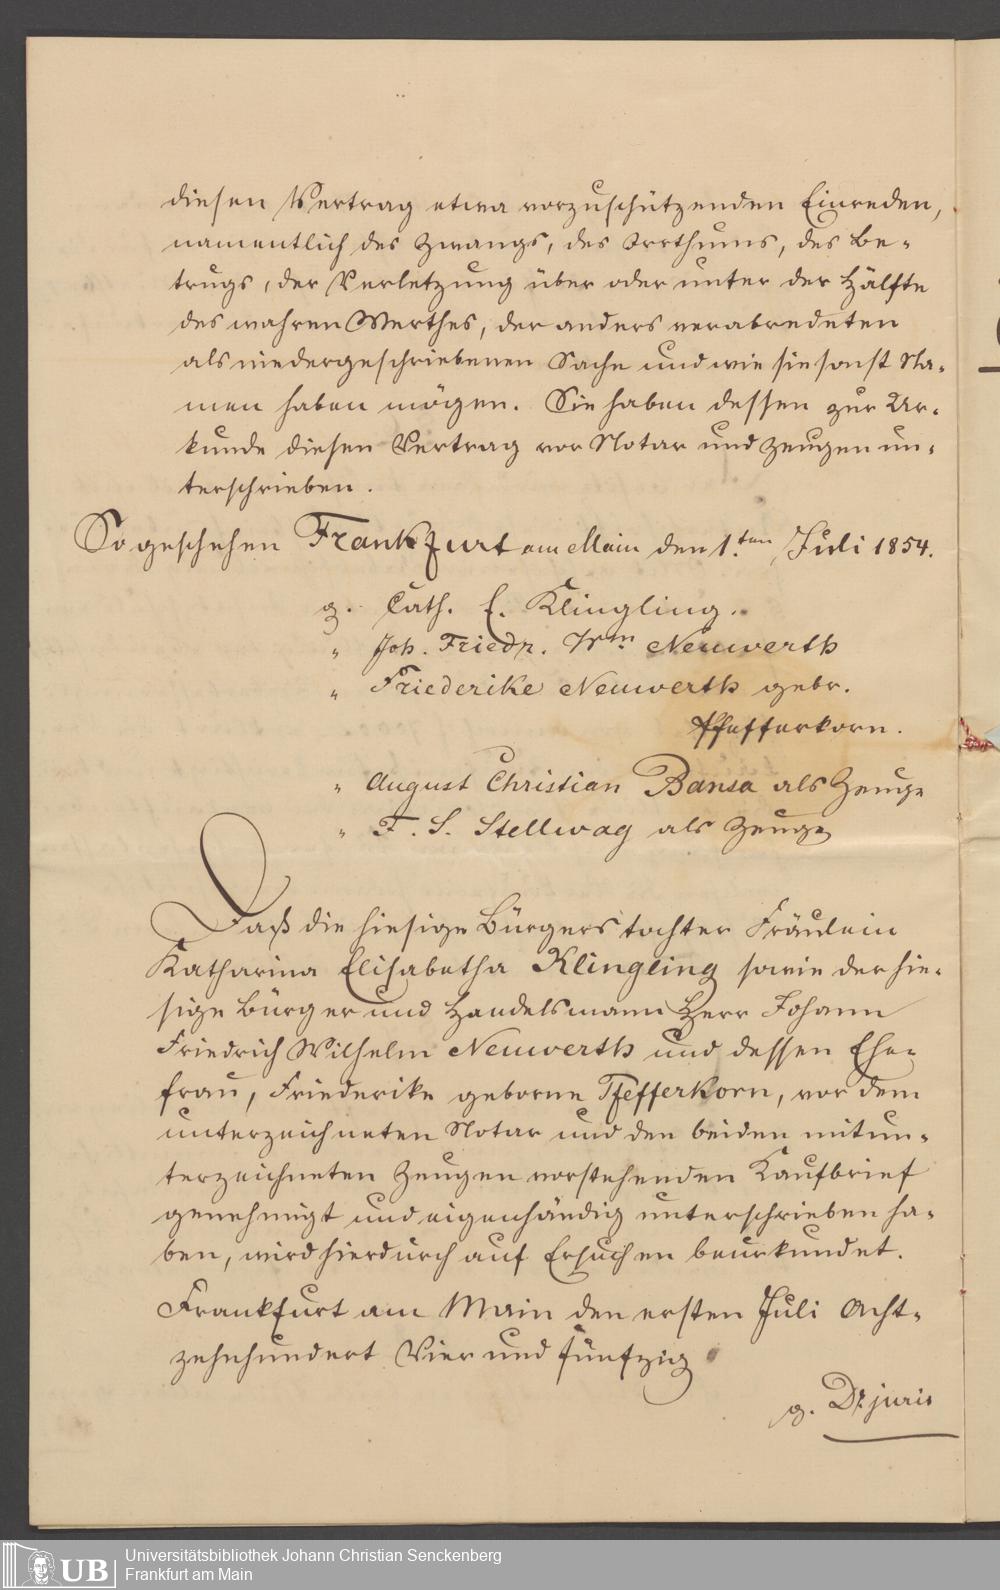 diesen Vertrag etwa vorzuschützenden Einreden,
namentlich des Zwangs, des Irrthums, des Be-
trugs, der Verletzung über oder unter der Hälfte
des wahren Werthes, der anders verabredeten
als niedergeschriebenen Sache und wie sie sonst Na-
men haben mögen. Sie haben dessen zur Ur-
kunde diesen Vertrag vor Notar und Zeugen un-
terschrieben.
So geschehen Frankfurt am Main den 1.ten Juli 1854.
g. Cath. E. Klingling.
" Joh. Friedr. Wm Neuwerth
" Friederike Neuwerth gebr.
Pfefferkorn.
" August Christian Bansa als Zeuge
" F. S. Stellwag als Zeuge
Daß die hiesige Bürgerstochter Fräulein
Katharina Elisabetha Klingling sowie der hie-
sige Bürger und Handelsmann Herr Johann
Friedrich Wilhelm Neuwerth und dessen Ehe-
frau, Friederike geborne Pfefferkorn, vor dem
unterzeichneten Notar und den beiden mitun-
terzeichneten Zeugen vorstehenden Kaufbrief
genehmigt und eigenhändig unterschrieben ha-
ben, wird hierdurch auf Ersuchen beurkundet.
Frankfurt am Main den ersten Juli Acht-
zehnhundert Vier und fünfzig
g. Dr. juris
UB
Universitätsbibliothek Johann Christian Senckenberg
Frankfurt am Main